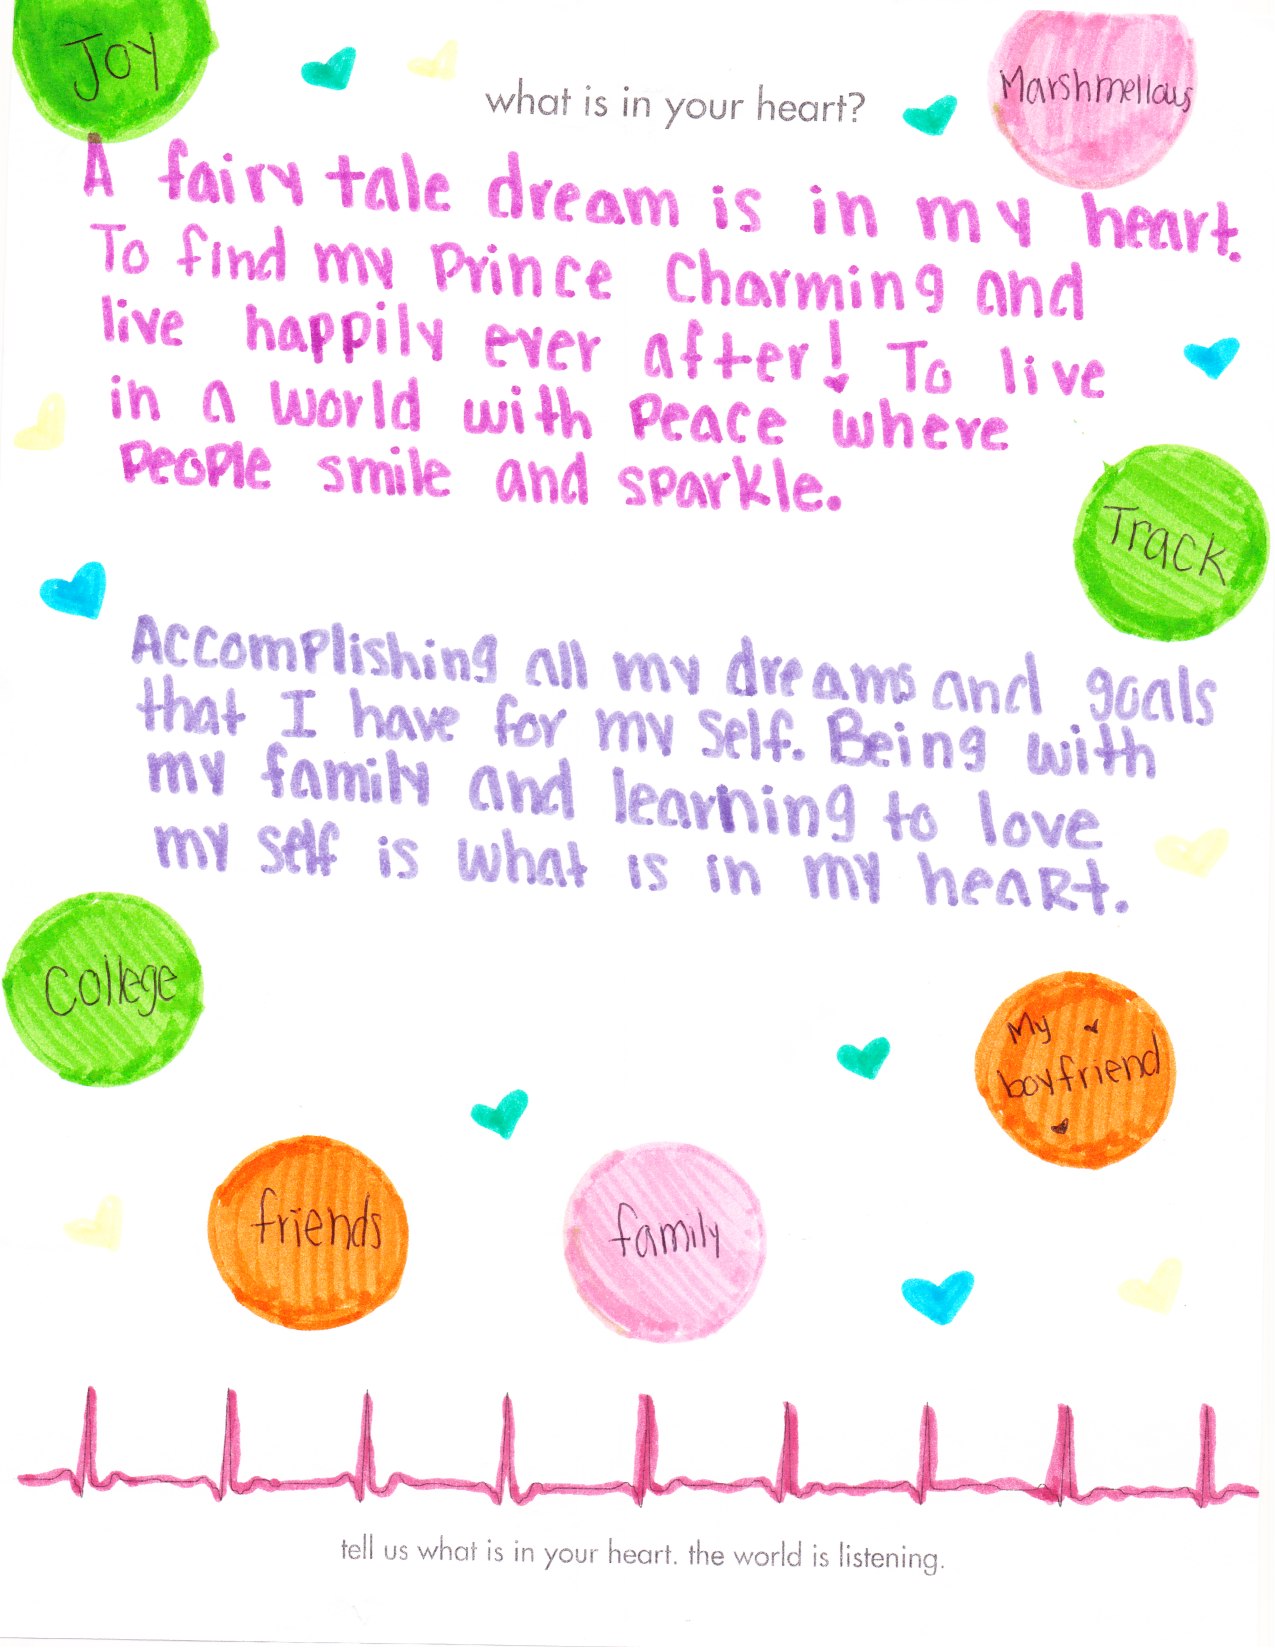 Joy
what is in your heart?
Marshmellows
A fairy tale dream is in my heart.
To find my Prince Charming and
live happily ever after! To live
in a world with Peace where
People smile and sparkle.
Track
Accomplishing all my dreams and goals
that I have for my self. Being with
my family and learning to love
my self is what is in my heart.
College
My
boyfriend
friends
family
tell us what is in your heart. the world is listening.